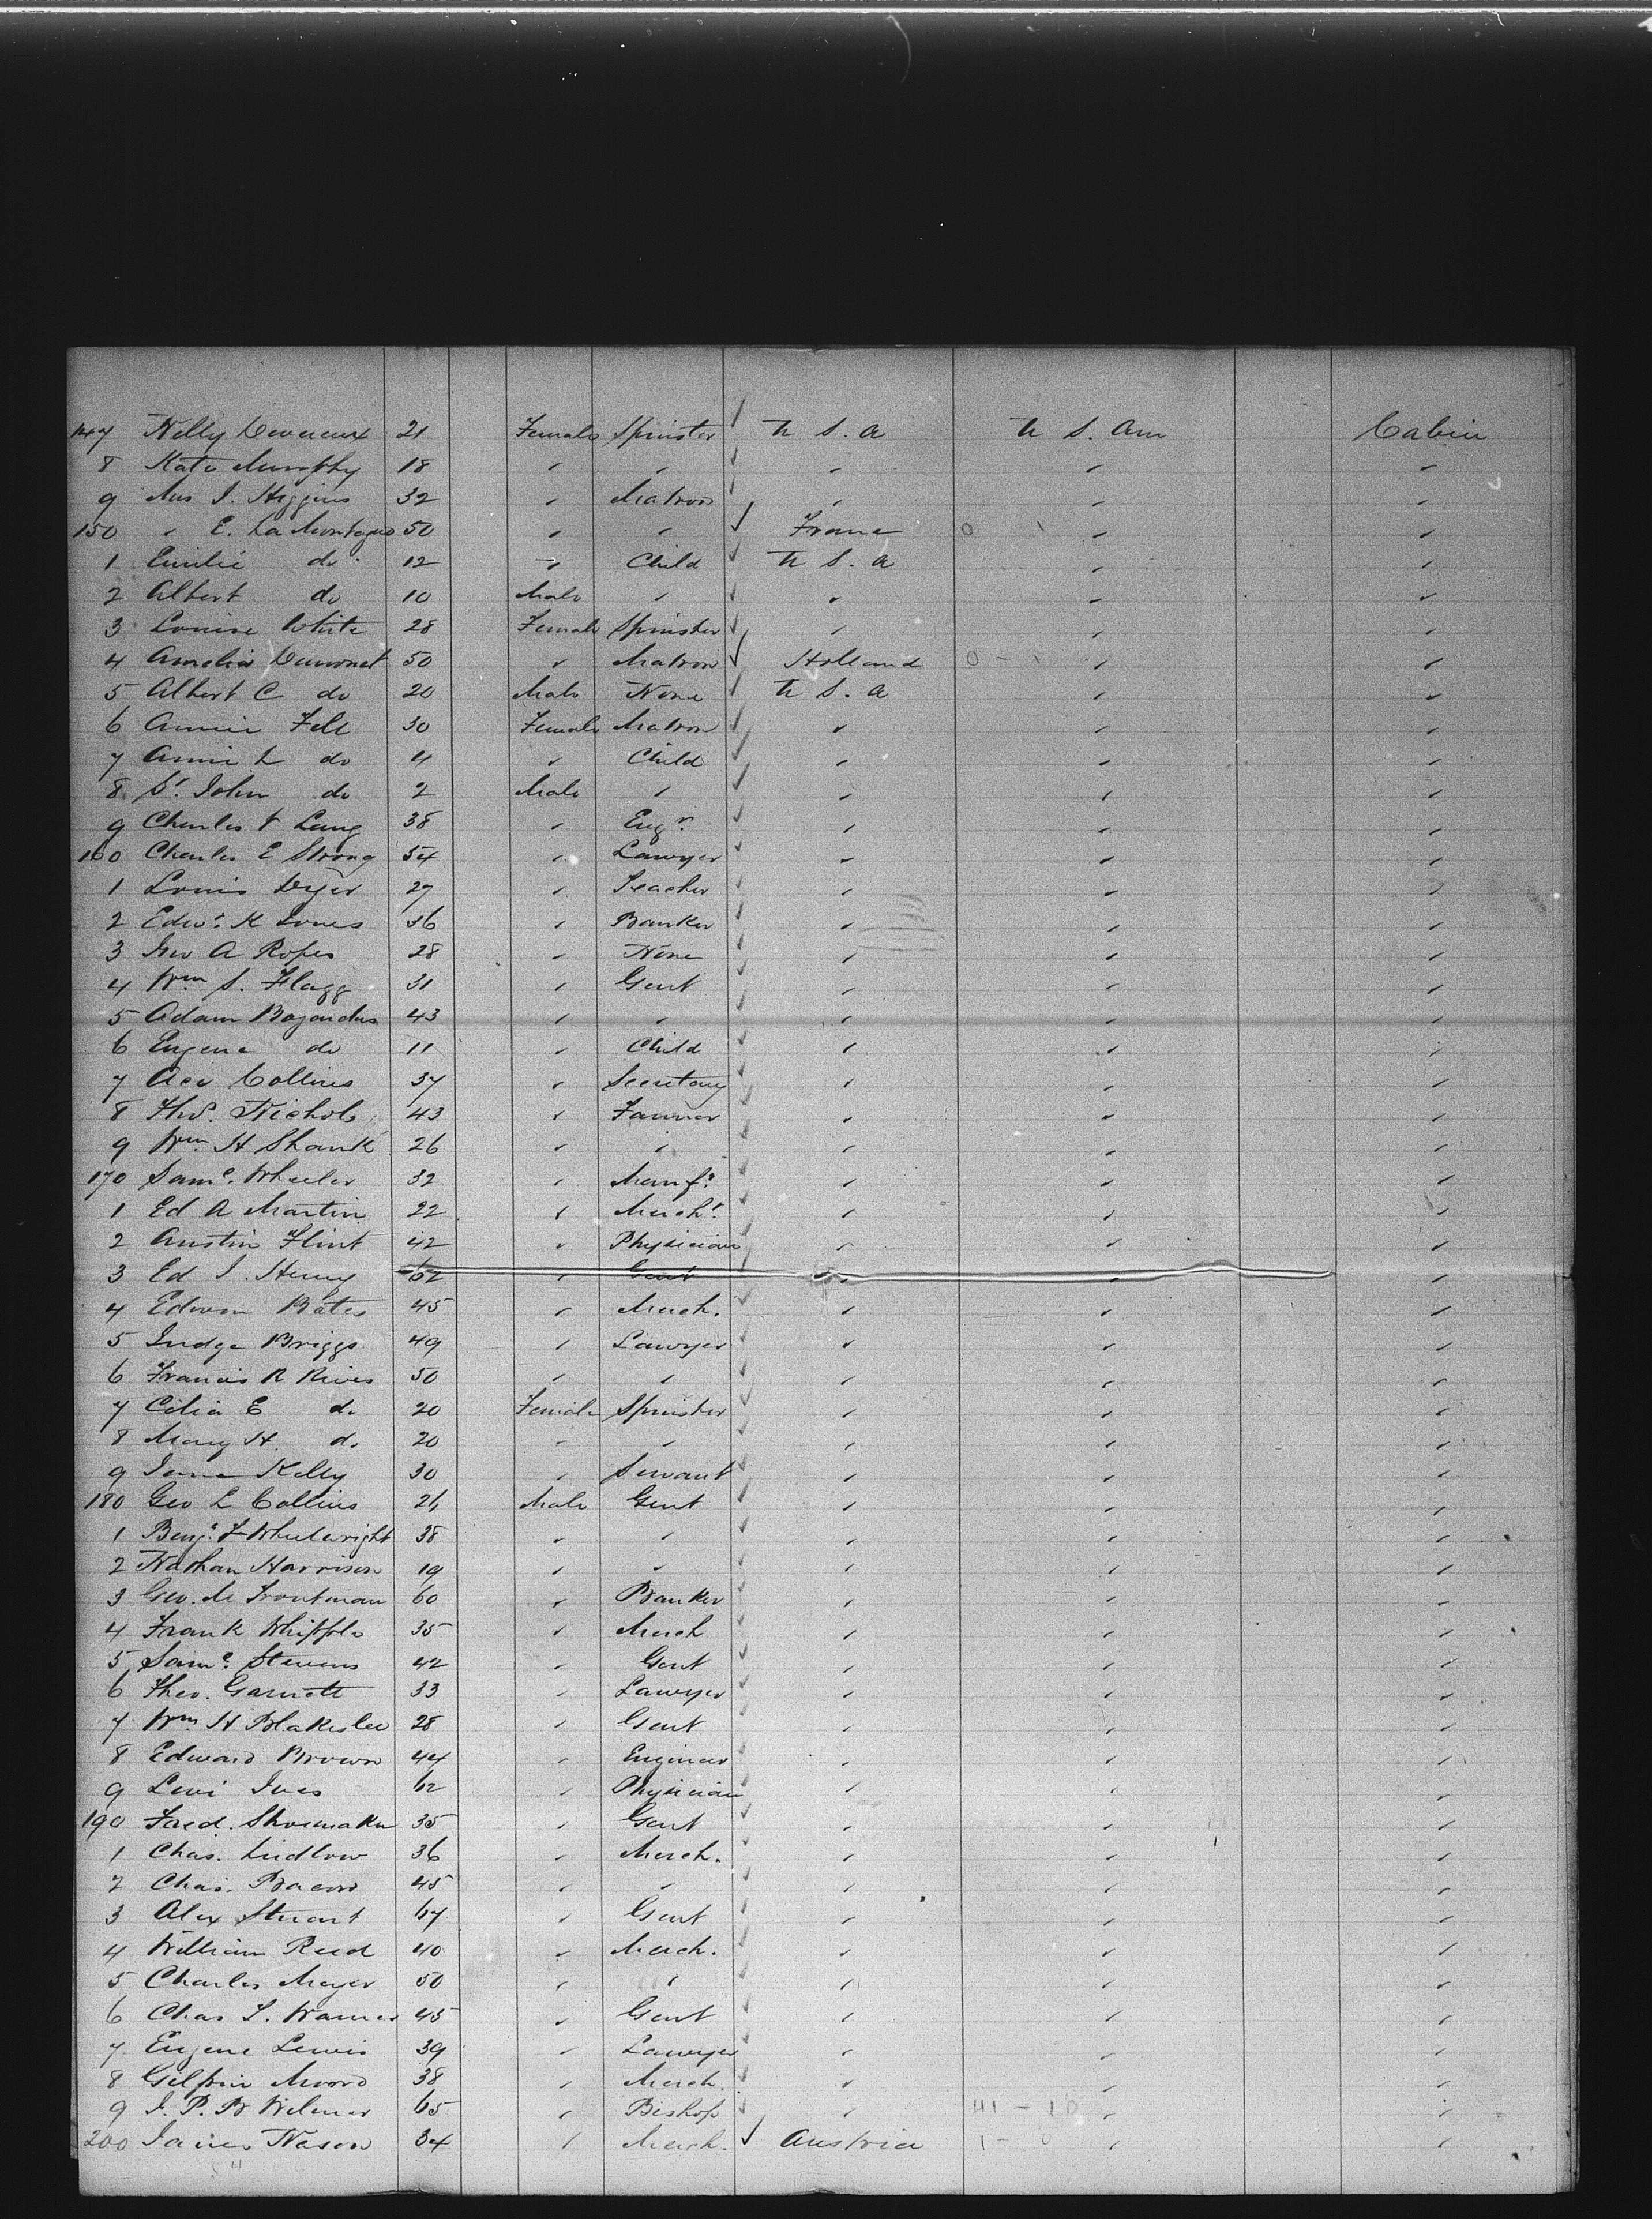 147 Nelly Devereux 21 Female Spinster U S. A U S. Am Cabin
8 Kate Murphy 18 " " " " "
9 Mrs J. Higgins 32 " Matron " " "
150 " E. La Montagne 50 " " France 0 " "
1 Emilie do 12 " Child U S. A " "
2 Albert do 10 Male " " " "
3 Louise White 28 Female Spinster " " "
4 Amelia 50 " Matron Holland 0 - " "
5 Albert C do 20 Male None U S. A " "
6 Annie Fell 30 Female Matron " " "
7 Annie L do 4 " Child " " "
8 St. John do 2 Male " " " "
9 Charles F Lang 38 " Engr. " " "
160 Charles E Strong 54 " Lawyer " " "
1 Louis Dyer 27 " Teacher " " "
2 Edwd. K Jones 36 " Banker " " "
3 A Ropes 28 " None " " "
4 Wm S. Flagg 31 " Gent " " "
5 Adam Bogardus 43 " " " " "
6 Eugene do 11 " Child " " "
7 Collins 37 " Secretary " " "
8 Thos. Nichols 43 " Farmer " " "
9 Wm. H Shank 26 " " " " "
170 Saml. Wheeler 32 " Manf. " " "
1 Ed A Martin 22 " Mercht. " " "
2 Austin Flint 42 " Physician " " "
3 Ed J. Henry 62 " Gent " " "
4 Edwin Bates 45 " Merch. " " "
5 Judge Briggs 49 " Lawyer " " "
6 Francis R Rives 50 " " " " "
7 Celia E do 20 Female Spinster " " "
8 Mary H. do 20 " " " " "
9 Jane Kelly 30 " Servant " " "
180 Geo L Collins 26 Male Gent " " "
1 Benj. F Wheelwright 38 " " " " "
2 Nathan Harrison 19 " " " " "
3 Geo. M Troutman 60 " Banker " " "
4 Frank Whipple 35 " Merch " " "
5 Saml. Stevens 42 " Gent " " "
6 Theo. Garnett 33 " Lawyer " " "
7 Wm H Blakeslee 28 " Gent " " "
8 Edward Brown 44 " Engineer " " "
9 Levi Ives 62 " Physician " " "
190 Fred. Shoemaker 35 " Gent " " "
1 Chas. Ludlow 36 " Merch. " " "
2 Chas. Bacon 45 " " " " "
3 Alex Stuart 67 " Gent " " "
4 William Reed 40 " Merch. " " "
5 Charles Mayer 50 " " " " "
6 Chas 45 " Gent " " "
7 Eugene Lewis 39 " Lawyer " " "
8 Gilpin Moore 38 " Merch. " " "
9 J. P. B Wilmer 65 " Bishop " 41 - 10 " "
200 James Nason 34 " Merch. Austria 1 - " "